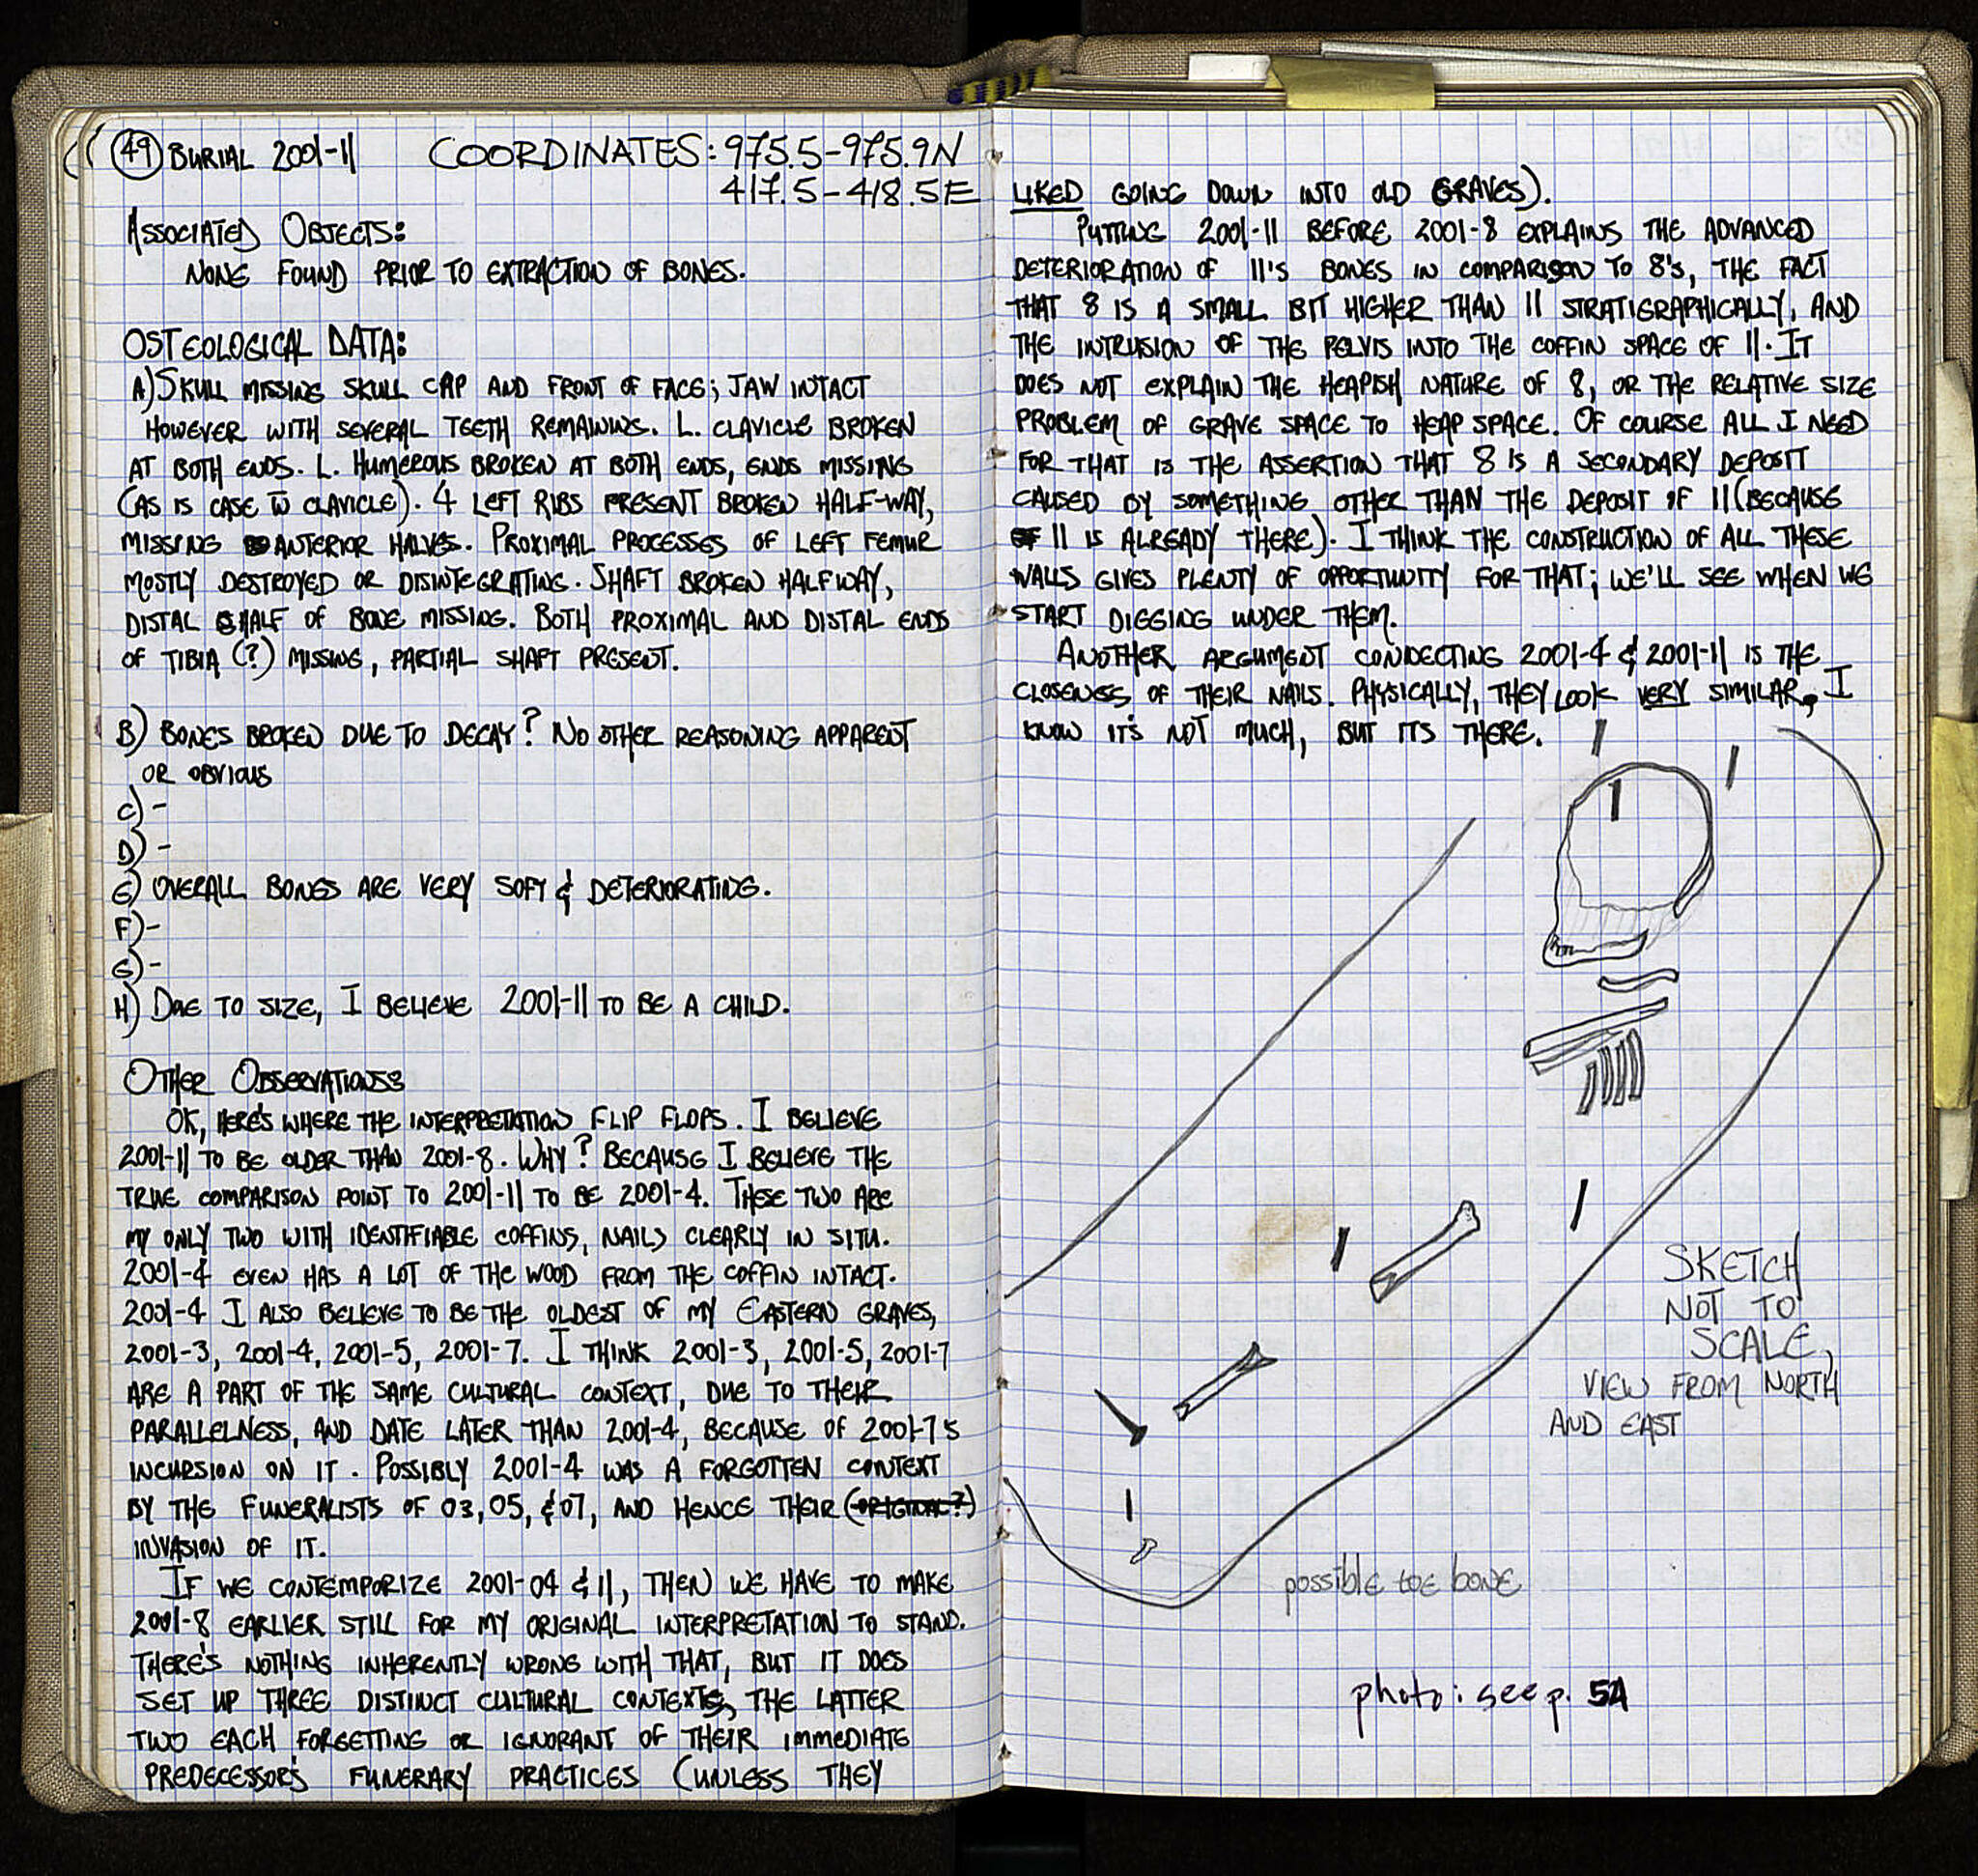 49 BURIAL 2001-11 COORDINATES: 975.5-975.9N
417.5-418.5E
ASSOCIATED OBJECTS:
NONE FOUND PRIOR TO EXTRACTION OF BONES.
OSTEOLOGICAL DATA:
A) SKULL MISSING SKULL CAP AND FRONT OF FACE; JAW INTACT
HOWEVER WITH SEVERAL TEETH REMAINING. L. CLAVICLE BROKEN
AT BOTH ENDS. L. HUMEROUS BROKEN AT BOTH ENDS, ENDS MISSING
(AS IS CASE W̄ CLAVICLE). 4 LEFT RIBS PRESENT BROKEN HALF-WAY,
MISSING ANTERIOR HALVES. PROXIMAL PROCESSES OF LEFT FEMUR
MOSTLY DESTROYED OR DISINTEGRATING. SHAFT BROKEN HALFWAY,
DISTAL HALF OF BONE MISSING. BOTH PROXIMAL AND DISTAL ENDS
OF TIBIA (?) MISSING, PARTIAL SHAFT PRESENT.
B) BONES BROKEN DUE TO DECAY? NO OTHER REASONING APPARENT
OR OBVIOUS
C) -
D) -
E) OVERALL BONES ARE VERY SOFT & DETERIORATING.
F) -
G) -
H) DUE TO SIZE, I BELIEVE 2001-11 TO BE A CHILD.
OTHER OBSERVATIONS:
OK, HERE'S WHERE THE INTERPRETATION FLIP FLOPS. I BELIEVE
2001-11 TO BE OLDER THAN 2001-8. WHY? BECAUSE I BELIEVE THE
TRUE COMPARISON POINT TO 2001-11 TO BE 2001-4. THESE TWO ARE
MY ONLY TWO WITH IDENTIFIABLE COFFINS, NAILS CLEARLY IN SITU.
2001-4 EVEN HAS A LOT OF THE WOOD FROM THE COFFIN INTACT.
2001-4 I ALSO BELIEVE TO BE THE OLDEST OF MY EASTERN GRAVES,
2001-3, 2001-4, 2001-5, 2001-7. I THINK 2001-3, 2001-5, 2001-7
ARE A PART OF THE SAME CULTURAL CONTEXT, DUE TO THEIR
PARALLELNESS, AND DATE LATER THAN 2001-4, BECAUSE OF 2001-7'S
INCURSION ON IT. POSSIBLY 2001-4 WAS A FORGOTTEN CONTEXT
BY THE FUNERALISTS OF 03, 05, & 07, AND HENCE THEIR (ORIGINAL?)
INVASION OF IT.
IF WE CONTEMPORIZE 2001-04 & 11, THEN WE HAVE TO MAKE
2001-8 EARLIER STILL FOR MY ORIGINAL INTERPRETATION TO STAND.
THERE'S NOTHING INHERENTLY WRONG WITH THAT, BUT IT DOES
SET UP THREE DISTINCT CULTURAL CONTEXTS, THE LATTER
TWO EACH FORGETTING OR IGNORANT OF THEIR IMMEDIATE
PREDECESSOR'S FUNERARY PRACTICES (UNLESS THEY
LIKED GOING DOWN INTO OLD GRAVES).
PUTTING 2001-11 BEFORE 2001-8 EXPLAINS THE ADVANCED
DETERIORATION OF 11'S BONES IN COMPARISON TO 8'S, THE FACT
THAT 8 IS A SMALL BIT HIGHER THAN 11 STRATIGRAPHICALLY, AND
THE INTRUSION OF THE PELVIS INTO THE COFFIN SPACE OF 11. IT
DOES NOT EXPLAIN THE HEAPISH NATURE OF 8, OR THE RELATIVE SIZE
PROBLEM OF GRAVE SPACE TO HEAP SPACE. OF COURSE ALL I NEED
FOR THAT IS THE ASSERTION THAT 8 IS A SECONDARY DEPOSIT
CAUSED BY SOMETHING OTHER THAN THE DEPOSIT OF 11 (BECAUSE
11 IS ALREADY THERE). I THINK THE CONSTRUCTION OF ALL THESE
WALLS GIVES PLENTY OF OPPORTUNITY FOR THAT; WE'LL SEE WHEN WE
START DIGGING UNDER THEM.
ANOTHER ARGUMENT CONNECTING 2001-4 & 2001-11 IS THE
CLOSENESS OF THEIR NAILS. PHYSICALLY, THEY LOOK VERY SIMILAR, I
KNOW IT'S NOT MUCH, BUT ITS THERE.
SKETCH
NOT TO
SCALE,
VIEW FROM NORTH
AND EAST
possible toe bone
photo: see p. 54